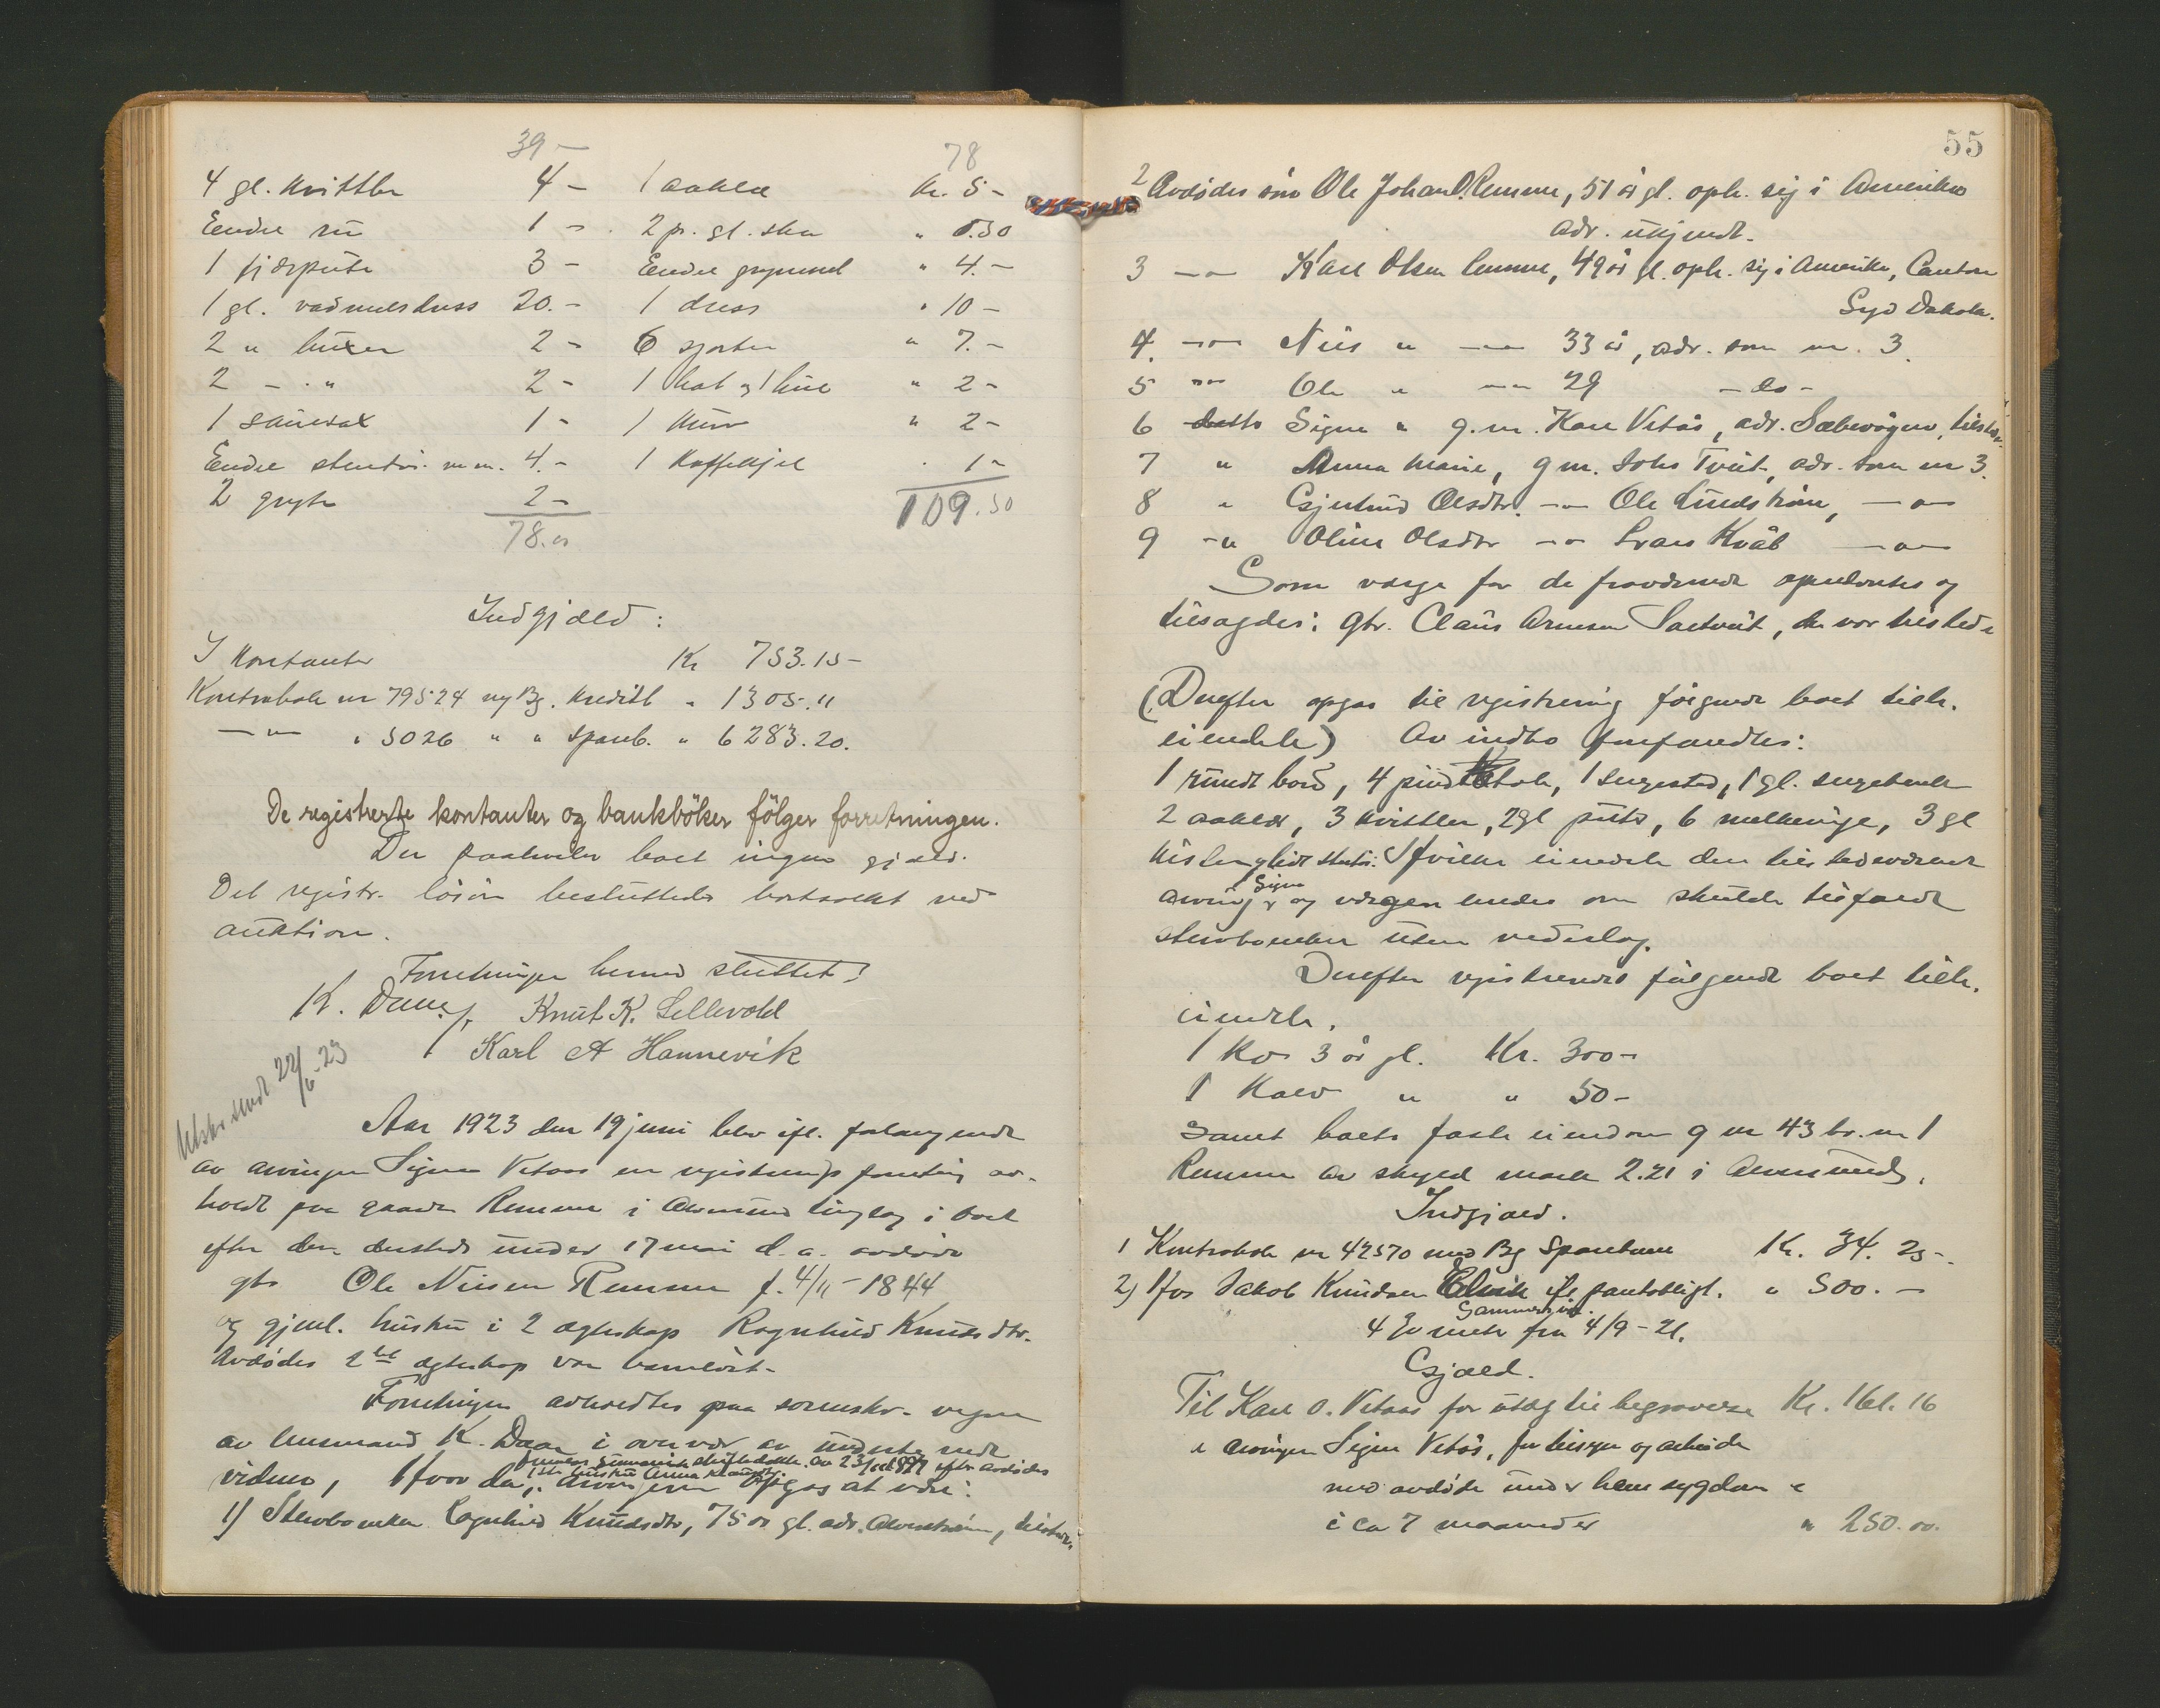 39 -
4 gl. kvittler 4 -
Endel 1 -
1 fjærpute 3 -
1 gl. vadmelsdress 20.-
2 " buxer 2 -
2 - . " 2 -
1 sauesax 1 -
Endel stentøi m m. 4.-
2 gryter 2 -
78.00
78
1 aaklæ kr. 5 -
2 pr. gl. sko " 0.50
Endel " 4.-
1 dress " 10 -
6 sjorter " 7.-
1 hat og 1 hue " 2 -
1 " 2 -
1 Kaffekjel . 1 -
109.50
Indgjæld:
I kontanter Kr 753.15 -
Kontrabok nr 79524 m/ Bg. Kreditb. " 1305."
- " - " 5026 " " Sparb. " 6283.20.
De registrerte kontanter og bankböker fölger forretningen.
Der paahviler boet ingen gjæld.
Det registr. løsøre besluttedes bortsolgt ved
auktion.
Forretningen hermed sluttet!
K. Knut K. Sellevold
Karl A Hannevik
Utskr. sendt 22/6-23
Aar 1923 den 19 juni blev ifl. forlangende
av arvingen Signe Vetaas en registrerings forretning av-
holdt paa gaarden Remme i Alversund tinglag i boet
efter den dersteds under 17 mai d. a. avdøde
gbr Ole Nilsen Remme f. 4/11 - 1844
og gjenl. hustru i 2 ægteskap Ragnhild Knutsdtr.
Avdødes 2det ægteskap var barnløst.
Forretningen avholdtes paa sorenskr. vegne
av lensmand K. i overvær av undertegnede
vidner, Hvor da, arvingerne opgas at være:
1) Stervboenken Ragnhild Knudsdtr, 75 år gl. adr. Alverstrøm, tilstede.
55
2 Avdødes søn Ole Johan O. Remme, 51 år gl. oph. sig i Amerika
adr. ukjendt.
3 - " - Karl Olsen Remme, 49 år gl. oph. sig i Amerika, Canton
Syd Dakota.
4. - " - Nils " - " - 33 år, adr. som nr. 3.
5 - " - Ole " - " - 29 - do -
6 datter Signe " g. m. Karl Vetås, adr. Sæbøvågen, tilstede.
7 " Anna Marie, g m. Johs Tveit, adr. som nr 3.
8 " Gjertrud Olsdtr. - " - Ole Lundstrøm, - " -
9 - " Oline Olsdtr - " - Lars Kvåle - " -
Som værge for de fraværende opnævntes og
tilsagdes: gbr. Claus Arnesen Sætveit, der var tilstede
(Derefter opgas til registrering følgende boet tilh.
eiendele) Av indbo forefandtes:
1 rundt bord, 4 pindestole, 1 sengested, 1 gl. sengebenk
2 aaklæ, 3 kvittler, 2 gl puter, 6 melkeringe, 3 gl
kister, litt stentøi. Hvilke eiendele den tilstedeværende
arving Signe og værgen enedes om skulde tilfalde
stervboenken uten vederlag.
Derefter registrertes følgende boet tilh.
eiendele.
1 ko 3 år gl. Kr. 300 -
1 Kalv " " 50 -
samt boets faste eiendom g nr 43 br. nr 1
Remme av skyld mark 2.21 i Alversund.
Indgjæld.
1 Kontrabok nr 42570 med Bg Sparebank Kr. 34. 25 -
2) Hos Jakob Knudsen ifl pantobligt. " 500. -
4 fra 4/9 - 21.
Gjæld.
Til Karl O. Vetaas for utlæg til begravelse Kr. 161. 16
" arvingen Signe Vetås, for tilsyn og arbeide
med avdøde under hans sygdom
i ca 7 maaneder " 250.00.